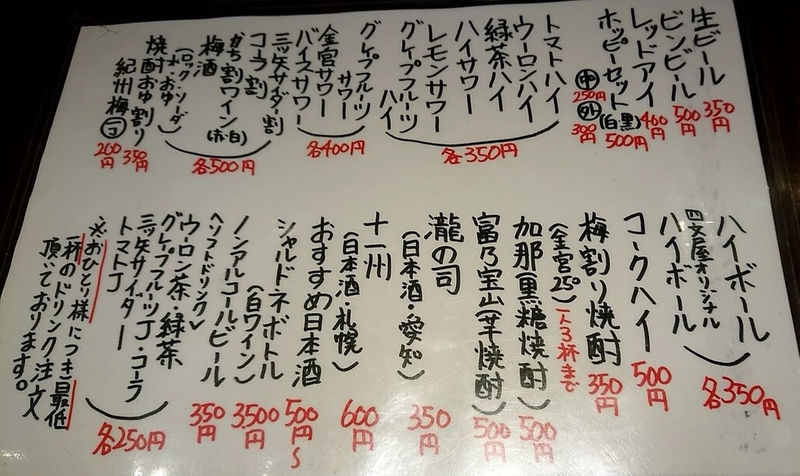 生ビール 350円
ビンビール 500円
レッドアイ 400円
ホッピーセット(白黒) 500円
㊥ 250円
外 300円
トマトハイ
ウーロンハイ
緑茶ハイ
ハイサワー
レモンサワー
グレプフルーツハイ
各350円
グレプフルーツサワー
金宮サワー
バイスサワー
各400円
三ッ矢サイダー割
コーラ割
かち割ワイン(赤・白)
梅酒
(ロック・ソーダ
水・おゆ)
各500円
焼酎おゆ割り 350円
紀州梅 ㋙ 200円
ハイボール
四文屋オリジナル
ハイボール
各350円
コークハイ 500円
梅割り焼酎 350円
(金宮25°) 一人3杯まで
加那(黒糖焼酎) 500円
富乃宝山(芋焼酎) 500円
瀧の司 350円
(日本酒・愛知)
十一州 600円
(日本酒・札幌)
おすすめ日本酒 500円~
シャルドネボトル 3,500円
(白ワイン)
ノンアルコールビール 350円
〈ソフトドリンク〉
ウーロン茶・緑茶
グレプフルーツJ・コーラ
三ッ矢サイダー
トマトJ
各250円
※おひとり様につき最低
一杯のドリンク注文
頂いております。